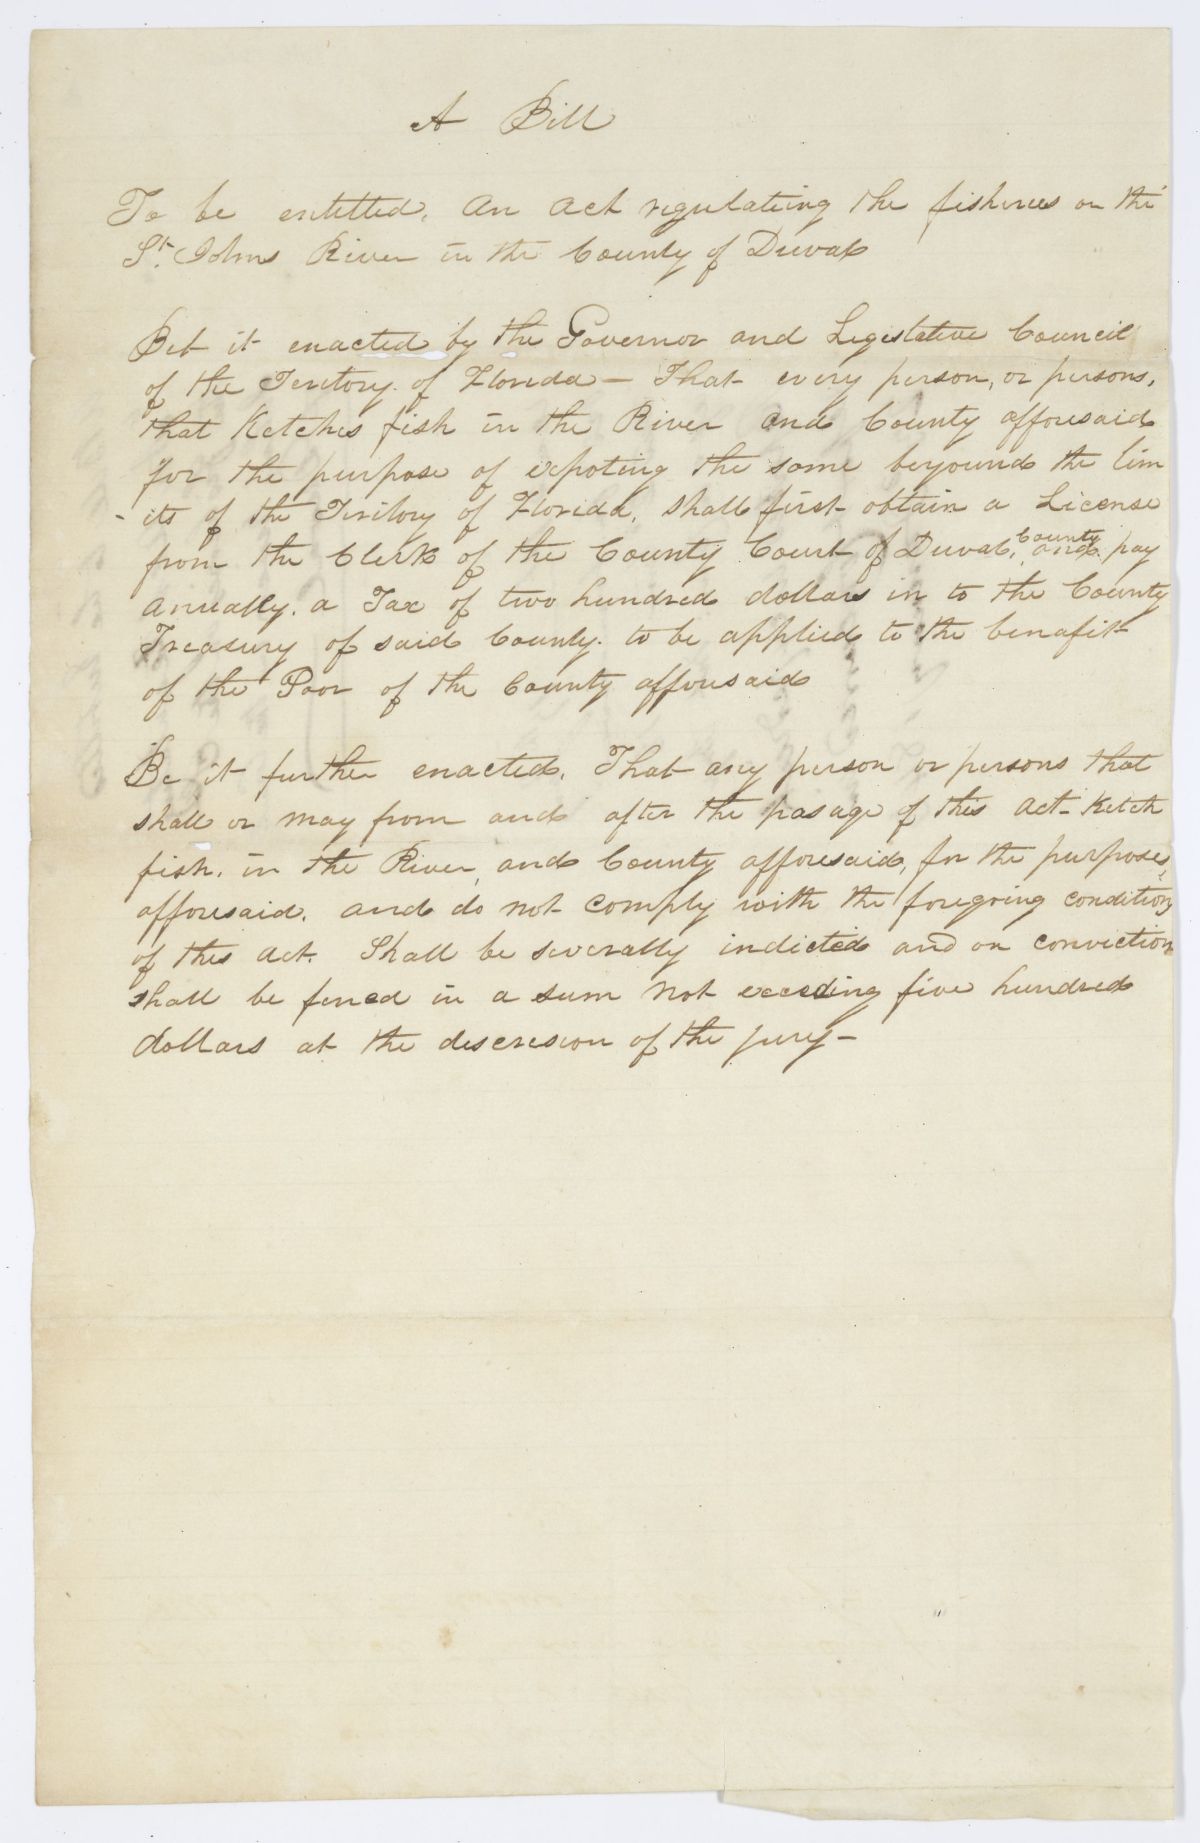 A Bill
To be entitled, An Act regulateing the fisheries on the
St. Johns River in the County of Duval
Bet it enacted by the Governor and Legislative Council
of the Teritory of Florida — That every person, or persons,
that Ketches fish in the River and County afforesaid
for the purpose of expoting the same beyound the lim
-its of the Teritory of Florida, shall first obtain a License
from the Clerk of the County Court of Duval, County and pay
Anually. a Tax of two hundred dollars in to the County
Treasury of said County. to be applied to the benafit
of the Poor of the County afforesaid
Be it further enacted, That any person or persons that
shall or may from and after the pasage of this Act Ketch
fish. in the River, and County afforesaid, for the purposes,
afforesaid. and do not comply with the foregoing conditions
of this Act. Shall be severally indicted and on conviction
shall be fined in a sum not exceeding five hundred
dollars at the descresion of the jury —